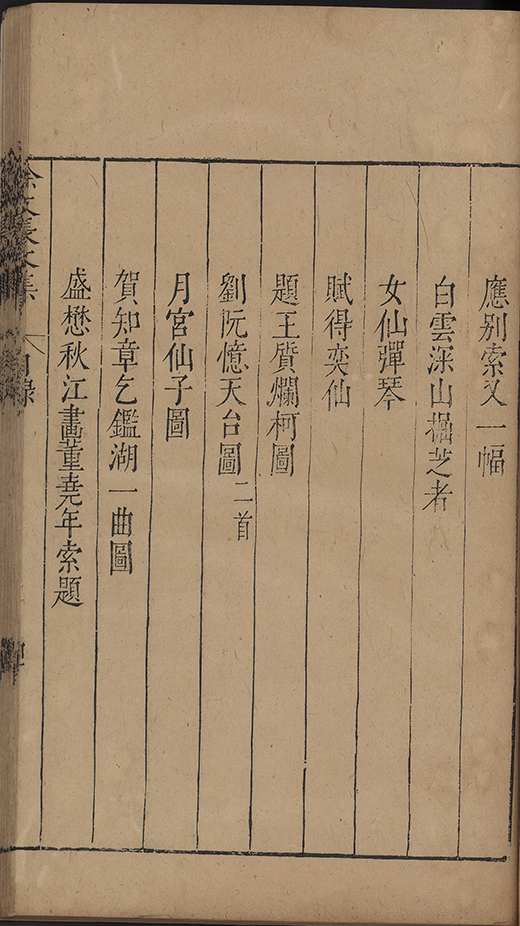 應别索又一幅
白雲深山掘芝者
女仙彈琴
賦得奕仙
題王質爛柯圖
劉阮憶天台圖 二首
月宮仙子圖
賀知章乞鑑湖一曲圖
盛懋秋江畫董堯年索題
徐文長文集 目錄